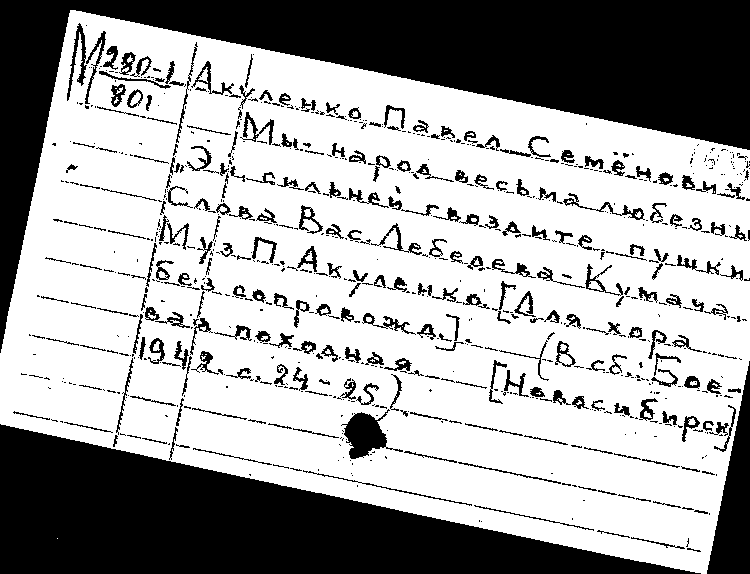 М 280-1
801
Акуленко, Павел Семёнович
Мы- народ весьма любезны
"Эй, сильней гвоздите, пушки
Слова Вас. Лебедева-Кумача.
Муз. П. Акуленко. [Для хора
без сопровожд.]. (В сб.: Бое-
вая походная. [Новосибирск]
1942. с. 24-25).